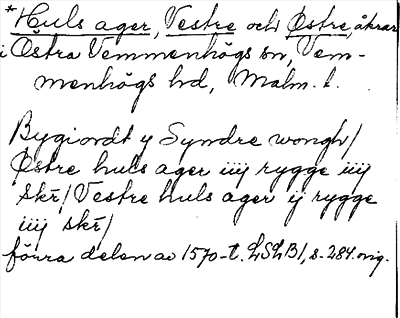 *Huls ager, Vestre och Östre, åkrar
i Östra Vemmenhögs sn, Vem-
menhögs hd, Malm. l.
Bygiordt y Syndre wongh/
Østre huls ager iiij rygge iiij
skr/ Vestre huls ager ij rygge
iiij skr/
förra delen av 1570-t. LSLB1, s. 284. orig.